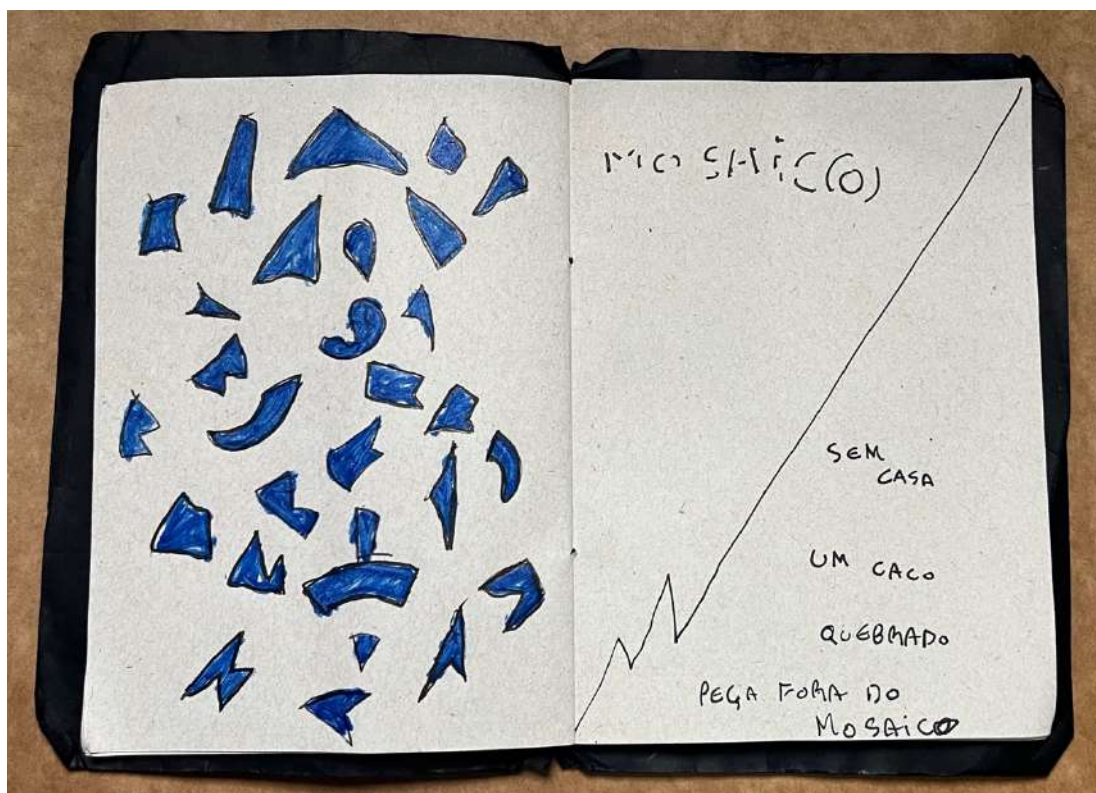 MOSAiC(O)
SEM
CASA
UM CACO
QUEBRADO
PEÇA FORA DO
MOSAiCO